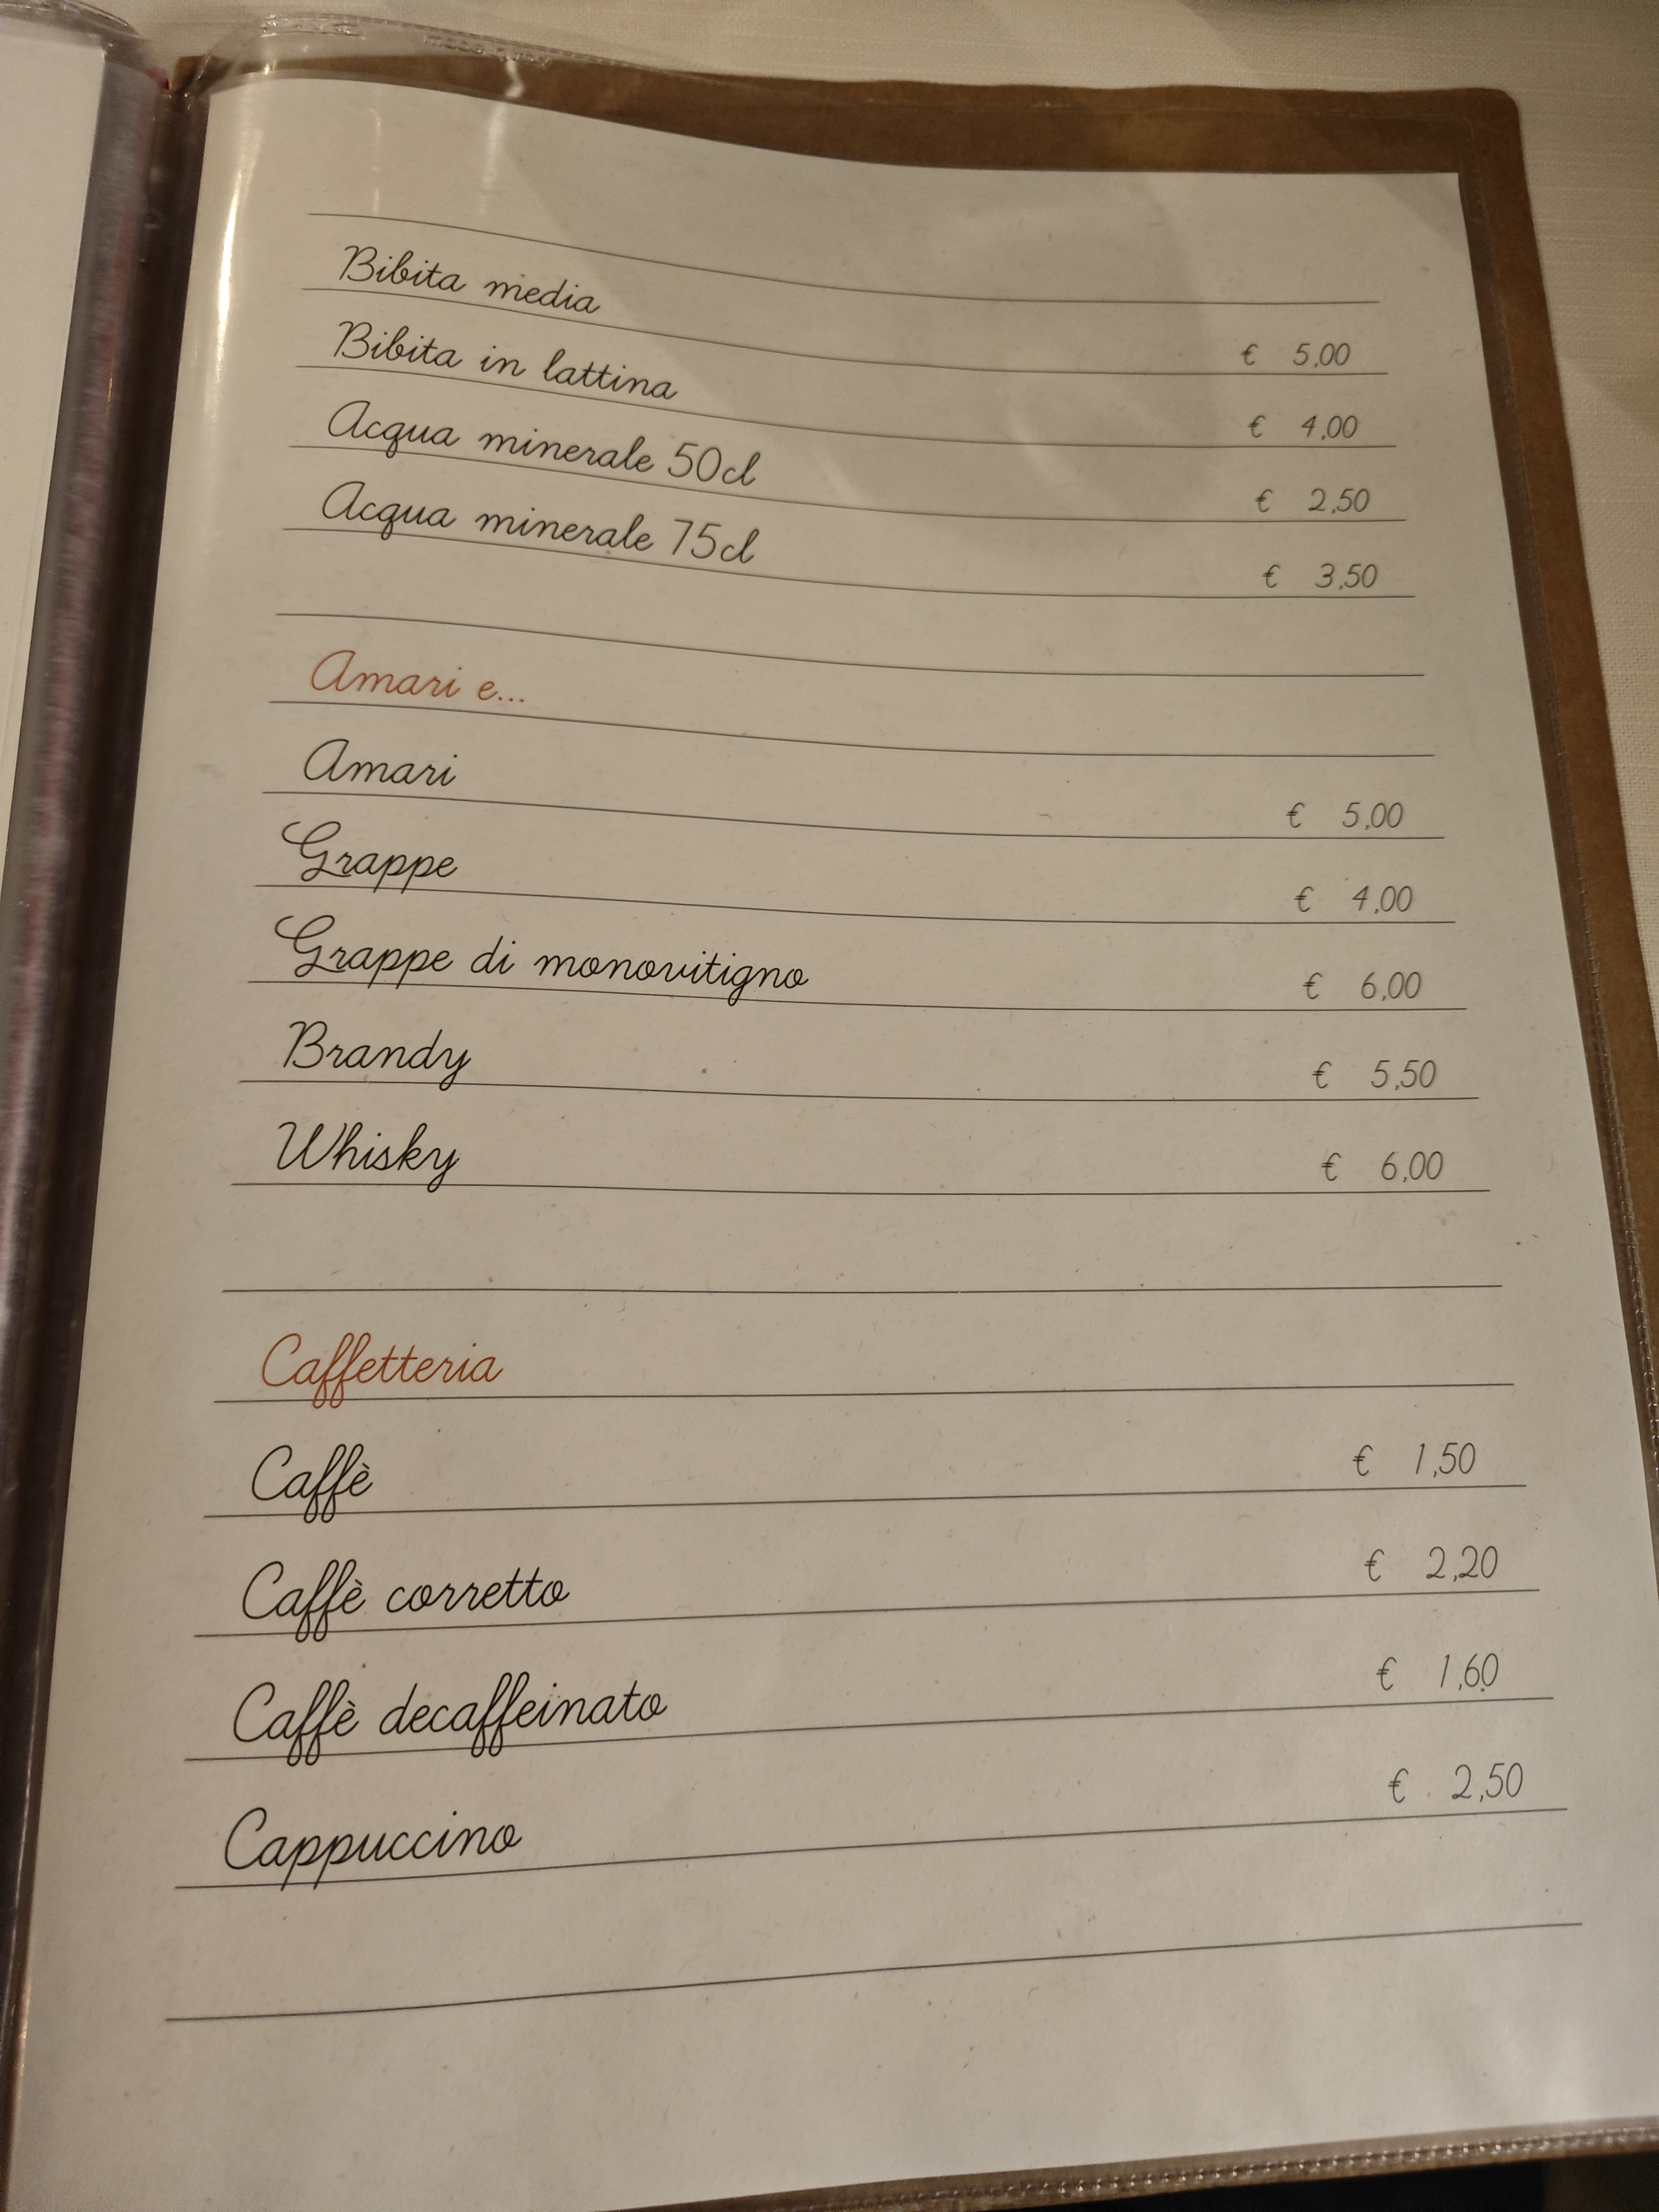 Bibita media € 5,00
Bibita in lattina € 4,00
Acqua minerale 50cl € 2,50
Acqua minerale 75cl € 3,50
Amari e...
Amari € 5,00
Grappe € 4,00
Grappe di monovitigno € 6,00
Brandy € 5,50
Whisky € 6,00
Caffetteria
Caffè € 1,50
Caffè corretto € 2,20
Caffè decaffeinato € 1,60
Cappuccino € 2,50